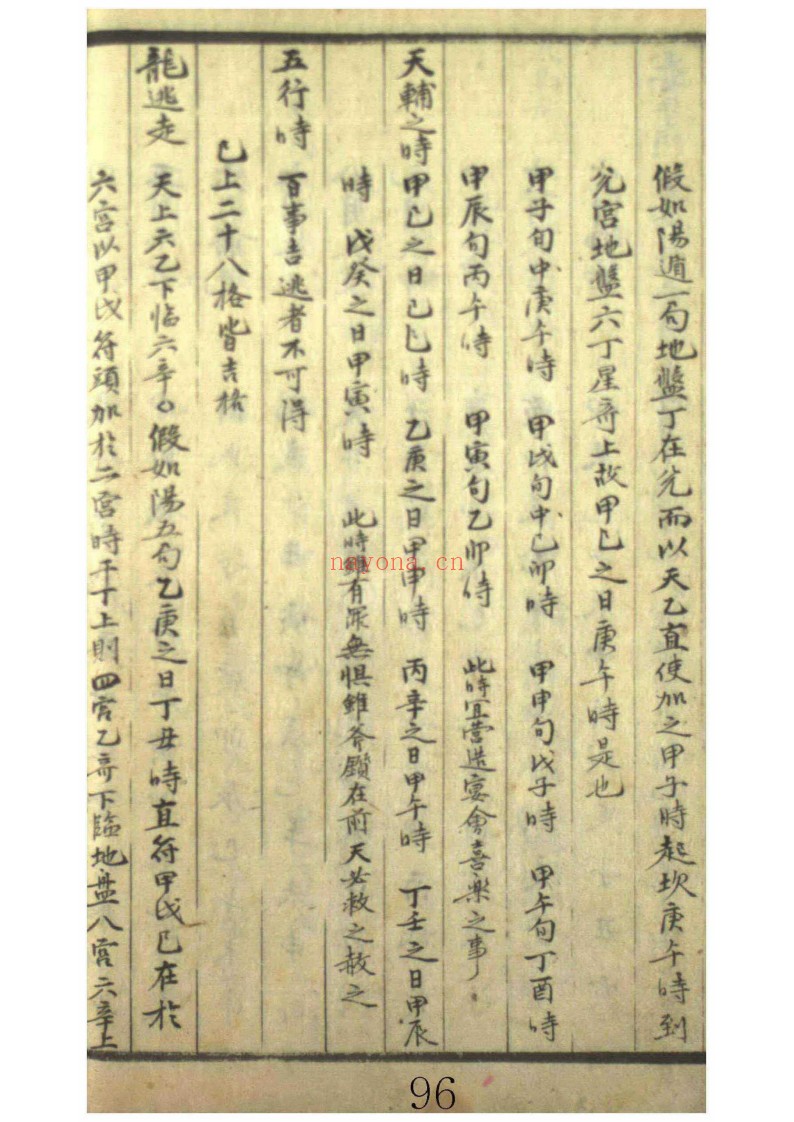 假如陽遁一局地盤丁在兌而以天乙直使加之甲子時起坎庚午時到
兌宮地盤六丁星奇上故甲己之日庚午時是也
甲子旬中庚午時 甲戌旬中己卯時 甲申旬戊子時 甲午旬丁酉時
甲辰旬丙午時 甲寅旬乙卯時 此時宜營造宴會喜樂之事
天輔之時甲己之日己巳時 乙庚之日甲申時 丙辛之日甲午時 丁壬之日甲辰
時 戊癸之日甲寅時 此時雖有罪無懼雖斧鑕在前天必救之赦之
五行時 百事吉逃者不可得
已上二十八格皆吉格
龍逃走 天上六乙下臨六辛○假如陽五局乙庚之日丁丑時直符甲戌己在於
六宮以甲戌符頭加於二宮時干丁上則四宮乙奇下臨地盘八宮六辛上
nayona.cn
96